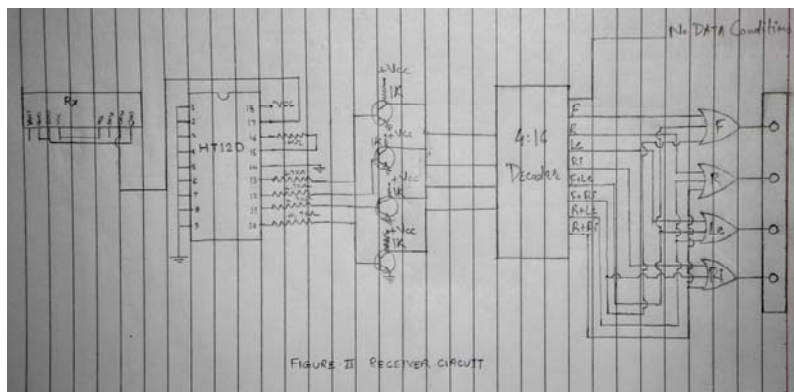 No DATA Condition
+Vcc
1K
Rx
1
2
3
4
5
6
7
8
9
HT12D
18
17
16
15
14
13
12
11
10
Vcc
+Vcc
1K
+Vcc
1K
+Vcc
1K
4:16
Decoder
F
R
Le
Ri
F+Ri
R+Le
R+Ri
F
R
Le
Ri
FIGURE II RECEIVER CIRCUIT